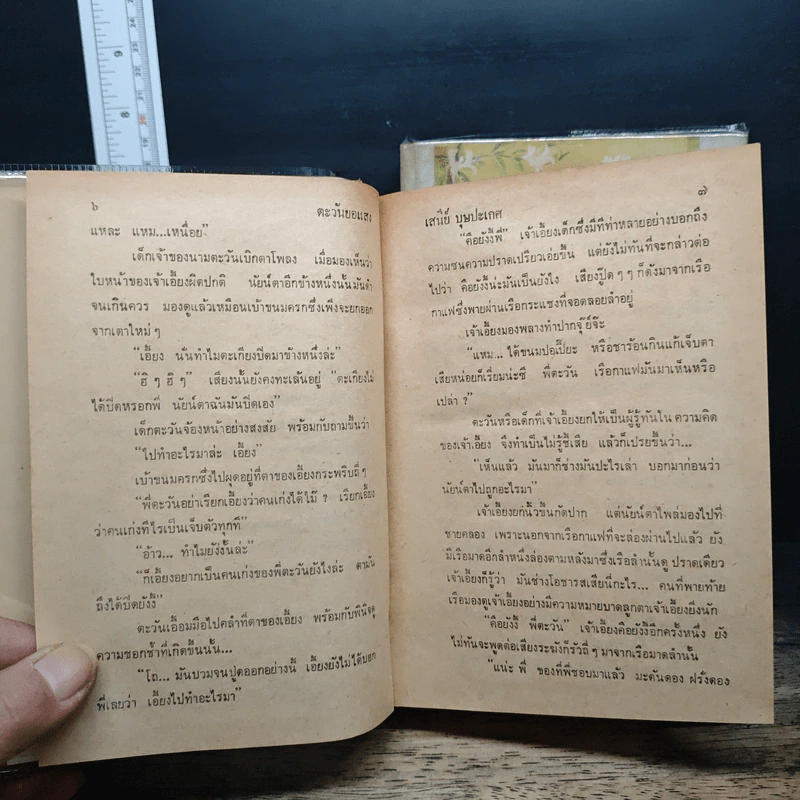 ๖ ตะวันยอแสง
แหละ แหม...เหนื่อย”
เด็กเจ้าของนามตะวันเบิกตาโพลง เมื่อมองเห็นว่า
ใบหน้าของเจ้าเอี้ยงผิดปกติ นัยน์ตาอีกข้างหนึ่งนั้นมันดำ
จนเกินควร มองดูแล้วเหมือนเบ้าขนมครกซึ่งเพิ่งจะยกออก
จากเตาใหม่ๆ
“เอี้ยง นั่นทำไมตะเกียงปิดมาข้างหนึ่งล่ะ”
“ฮิๆ ฮิๆ” เสียงนั้นยังคงทะเล้นอยู่ “ตะเกียงไม่
ได้ปิดหรอกพี่ นัยน์ตาฉันมันปิดเอง”
เด็กตะวันจ้องหน้าอย่างสงสัย พร้อมกับถามขึ้นว่า
“ไปทำอะไรมาล่ะ เอี้ยง”
เบ้าขนมครกซึ่งไปผุดอยู่ที่ตาของเอี้ยงกระพริบถี่ๆ
“พี่ตะวันอย่าเรียกเอี้ยงว่าคนเก่งได้ไม๊ ? เรียกเอี้ยง
ว่าคนเก่งทีไรเป็นเจ็บตัวทุกที”
“อ้าว... ทำไมยังงั้นล่ะ”
“ก็เอี้ยงอยากเป็นคนเก่งของพี่ตะวันยังไงล่ะ ตามัน
ถึงได้ปิดยังงี้”
ตะวันเอื้อมมือไปคลำที่ตาของเอี้ยง พร้อมกับพินิจดู
ความชอกช้ำที่เกิดขึ้นนั้น...
“โถ... มันบวมจนปูดออกอย่างนี้ เอี้ยงยังไม่ได้บอก
พี่เลยว่า เอี้ยงไปทำอะไรมา”
เสนีย์ บุษปะเกศ ๗
“คือยังงี้พี่” เจ้าเอี้ยงเด็กซึ่งมีทีท่าหลายอย่างบอกถึง
ความซนความปราดเปรียวเอ่ยขึ้น แต่ยังไม่ทันที่จะกล่าวต่อ
ไปว่า คือยังงี้น่ะมันเป็นยังไง เสียงปู๊ดๆๆ ก็ดังมาจากเรือ
กาแฟซึ่งพายผ่านเรือกระแซงที่จอดลอยลำอยู่
เจ้าเอี้ยงมองพลางทำปากจุ๊ย์จ๊ะ
“แหม... ได้ขนมปอเปี๊ยะ หรือชาร้อนกินแก้เจ็บตา
เสียหน่อยก็เรี่ยมน่ะซี พี่ตะวัน เรือกาแฟมันมาเห็นหรือ
เปล่า ?”
ตะวันหรือเด็กที่เจ้าเอี้ยงยกให้เป็นผู้รู้ทันใน ความคิด
ของเจ้าเอี้ยง จึงทำเป็นไม่รู้ชี้เสีย แล้วก็เปรยขึ้นว่า...
“เห็นแล้ว มันมาก็ช่างมันปะไรเล่า บอกมาก่อนว่า
นัยน์ตาไปถูกอะไรมา”
เจ้าเอี้ยงยกนิ้วขึ้นกัดปาก แต่นัยน์ตาไพล่มองไปที่
ชายคลอง เพราะนอกจากเรือกาแฟที่จะล่องผ่านไปแล้ว ยัง
มีเรือมาดอีกลำหนึ่งล่องตามหลังมาซึ่งเรือลำนั้นดู ปราดเดียว
เจ้าเอี้ยงก็รู้ว่า มันช่างโอชารสเสียนี่กะไร... คนที่พายท้าย
เรือมองดูเจ้าเอี้ยงอย่างมีความหมายบาดลูกตาเจ้าเอี้ยงยิ่งนัก
“คือยังงี้ พี่ตะวัน” เจ้าเอี้ยงคือยังงี้อีกครั้งหนึ่ง ยัง
ไม่ทันจะพูดต่อเสียงระฆังก็รัวถี่ๆ มาจากเรือมาดลำนั้น
“แน่ะ พี่ ของที่พี่ชอบมาแล้ว มะดันดอง ฝรั่งดอง